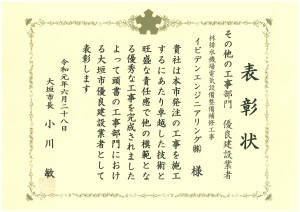 表彰状
その他の工事部門　優良建設業者
林排水機場電気設備整備補修工事
イビデンエンジニアリング㈱　様
貴社は本市発注の工事を施工
するにあたり卓越した技術と
旺盛な責任感で他の模範とな
る優秀な工事を完成されました
よって頭書の工事部門におけ
る大垣市優良建設業者として
表彰します
令和元年六月二十八日
大垣市長　小川　敏